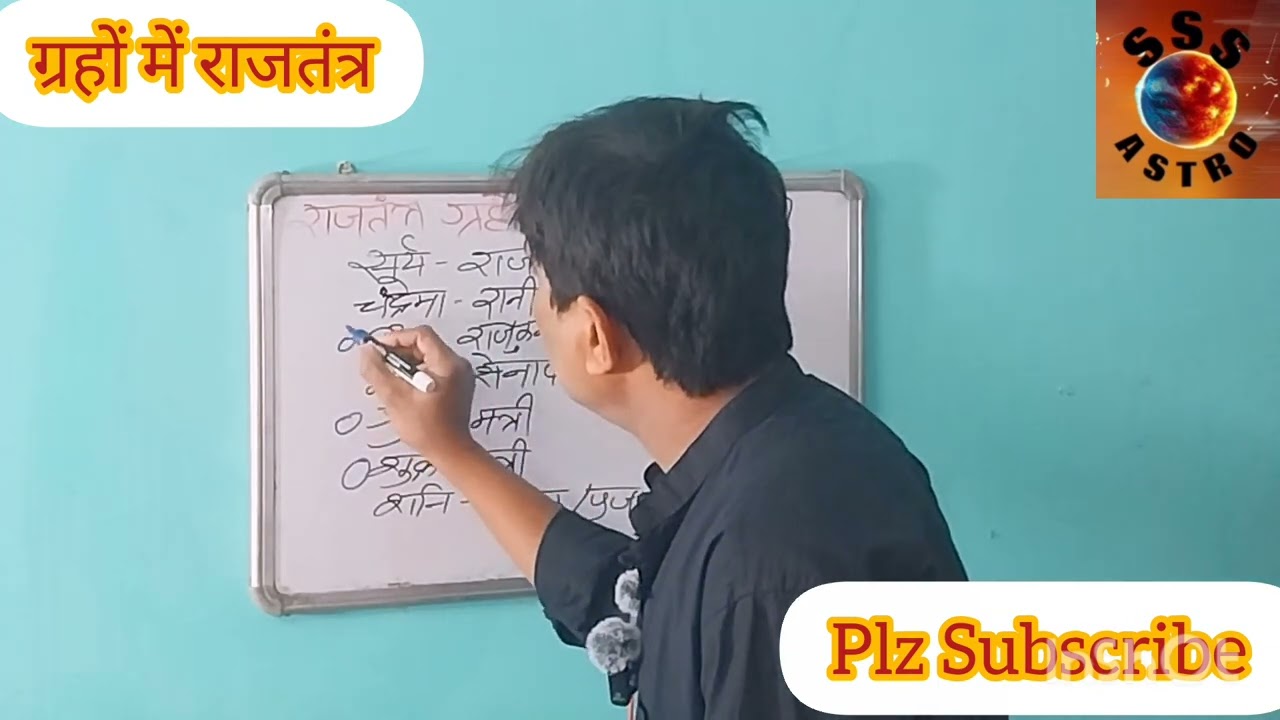 ग्रहों में राजतंत्र
SSS
ASTRO
राजतंत्र ग्रहो
सूर्य - राज
चंद्रमा - रानी
राजकु
सेनाप
मंत्री
शुक्र
शनि - /पुज
Plz Subscribe